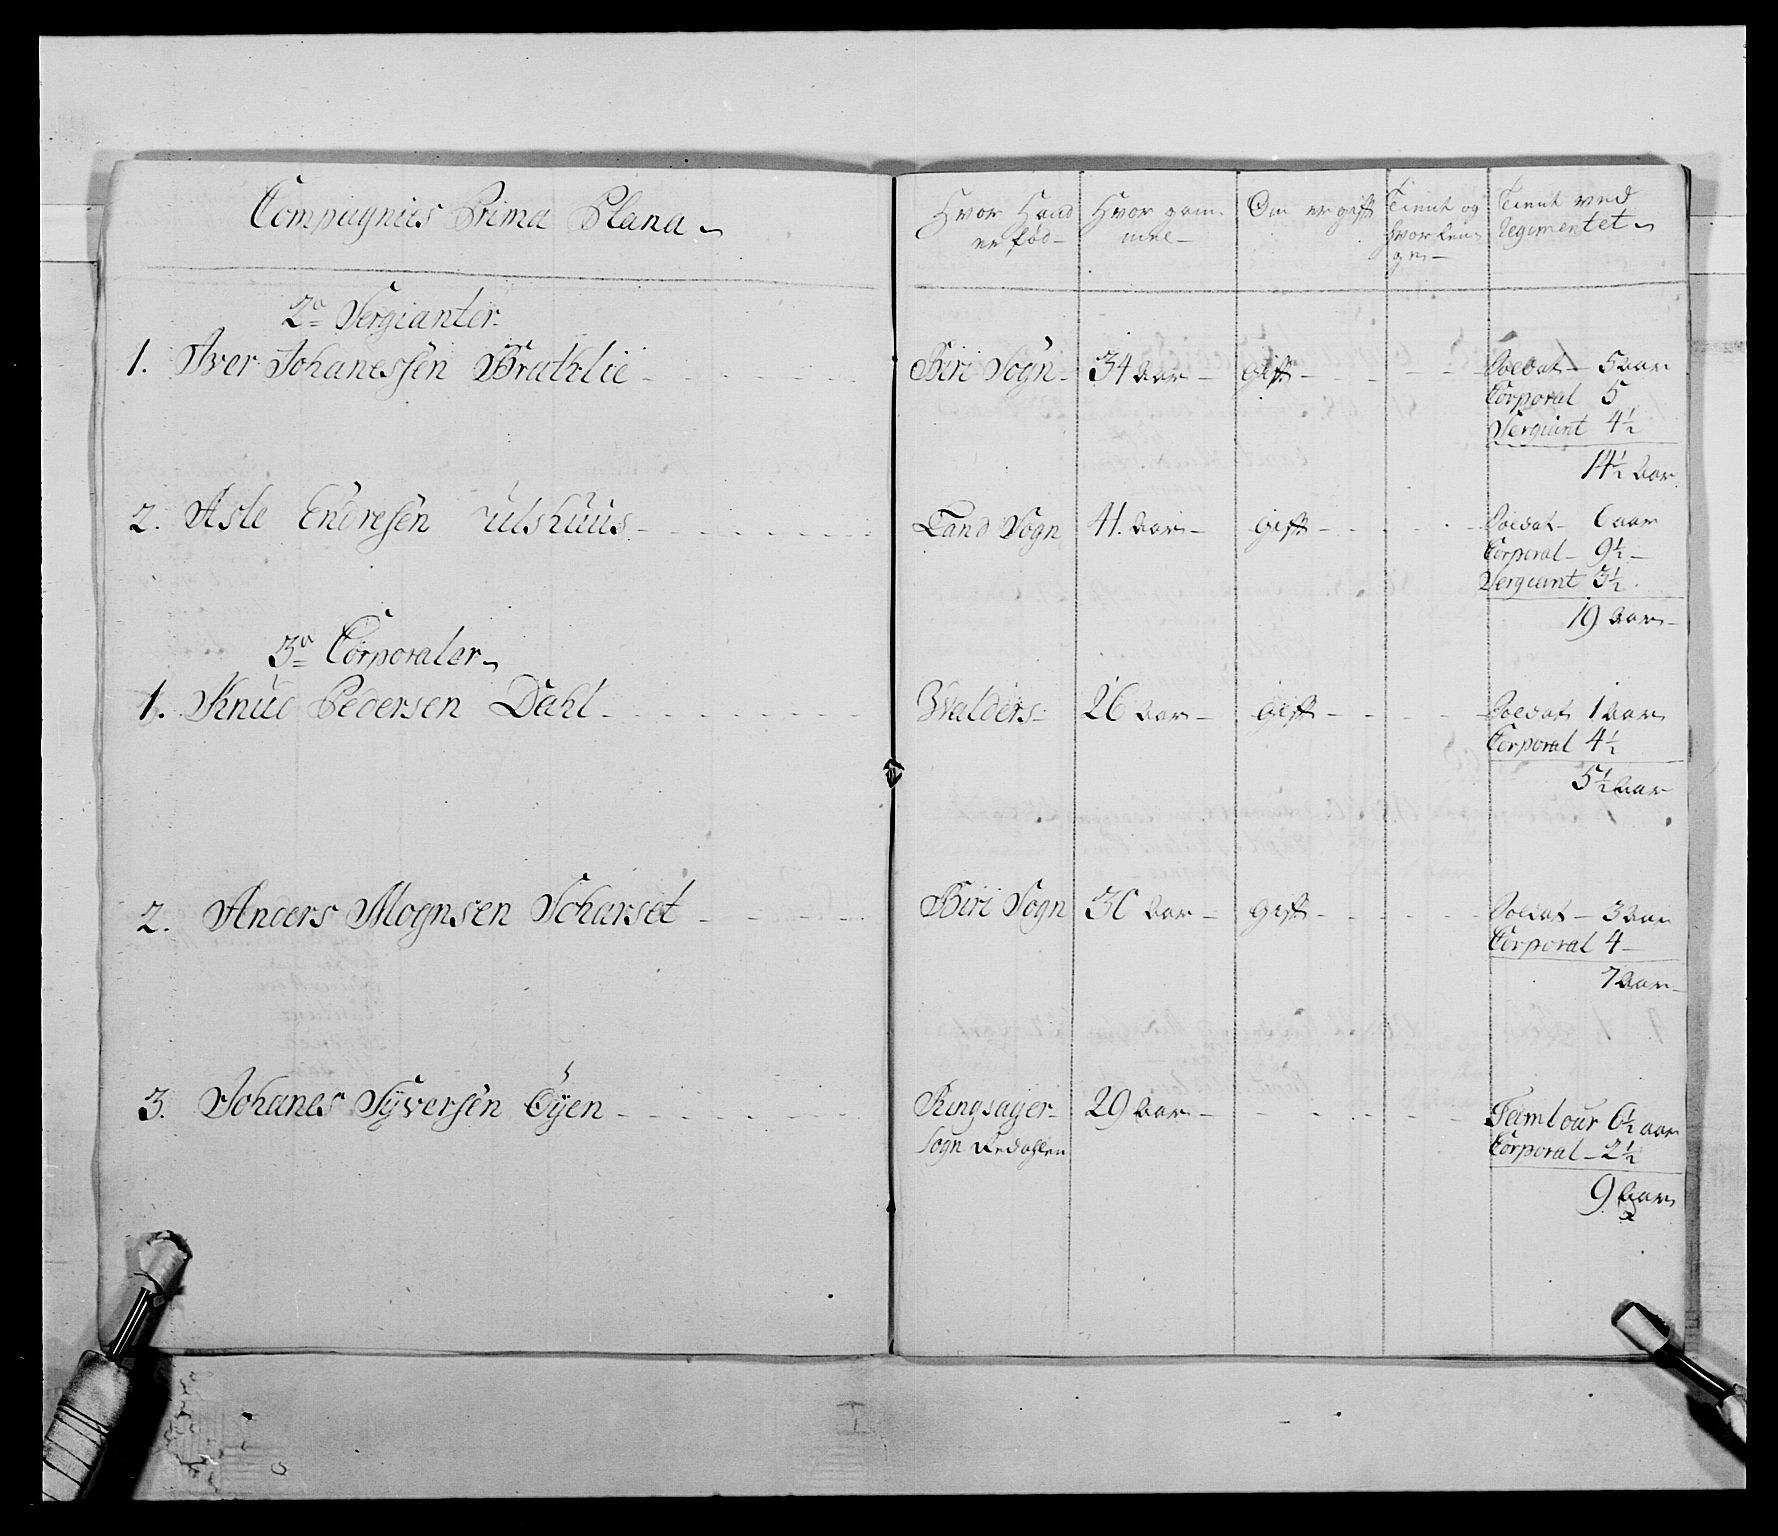 Compagniets Prima Plana
Hvor Hand er fød
Hvor gammel
Om er gift
Tient og hvor lenge
Tient ved Regimentet
2de Sergianter
1. Iver Johanessen Brathlie Biri Sogn 34 aar gift Soldat 5 aar
Corporal 5
Sergiant 4½
14½ aar
2. Asle Endresen Ulshuus Land Sogn 41. aar gift Soldat 6 aar
Corporal 9½
Sergiant 3½
19 aar
3de Corporaler
1. Knud Pedersen Dahl Walders 26 aar gift Soldat 1 aar
Corporal 4½
5½ aar
2. Anders Mognsen Scharset Biri Sogn 30 aar gift Soldat 3 aar
Corporal 4
7 aar
3. Johanes Syversen Öÿen Ringsager 29 aar Tambour 6½ aar
Sogn Redahlen Corporal 2½
9 aar